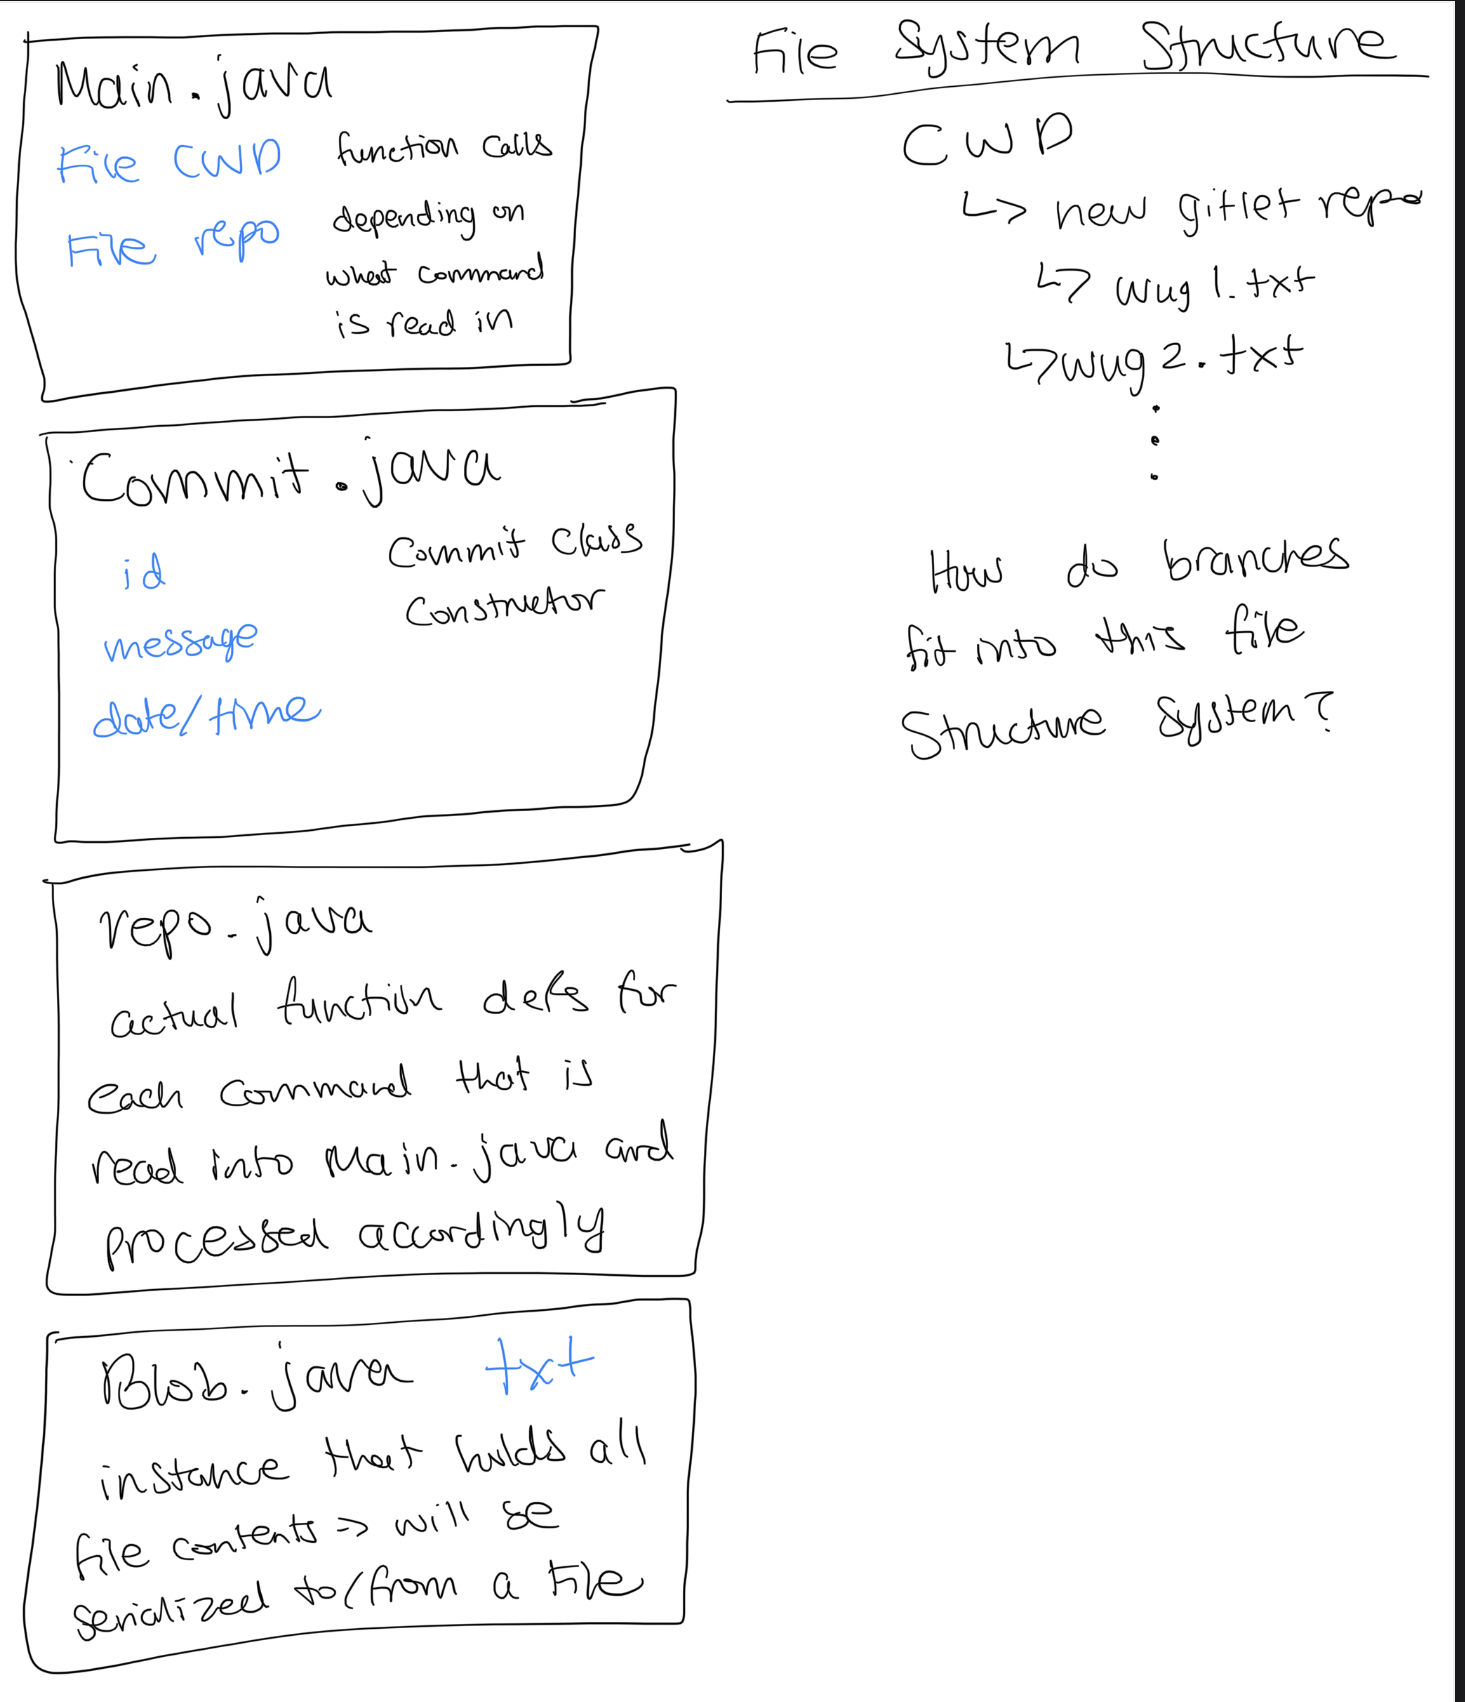 Main.java
File CWD
File repo
function calls
depending on
what command
is read in
Commit.java
id
message
date/time
Commit Class
Constructor
repo.java
actual function defs for
each command that is
read into Main.java and
processed accordingly
Blob.java txt
instance that holds all
file contents => will be
serialized to/from a file
File System Structure
CWD
↳ new gitlet repo
↳ wug 1.txt
↳ wug 2.txt
How do branches
fit into this file
Structure System?